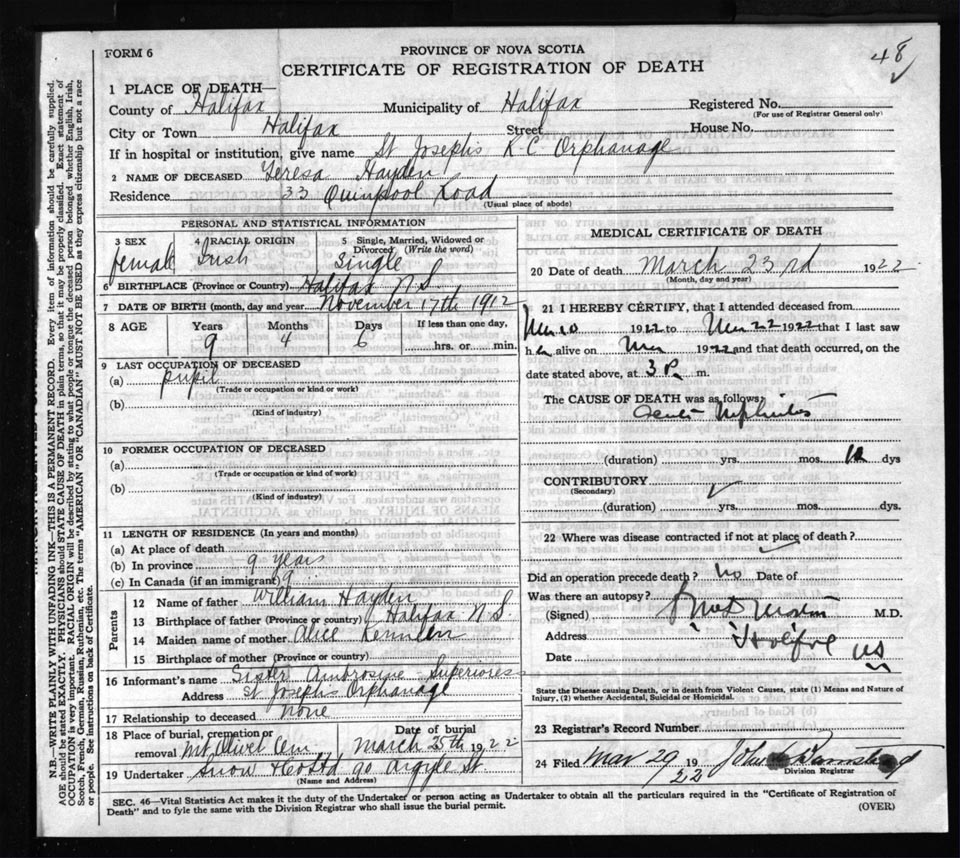 FORM 6
PROVINCE OF NOVA SCOTIA
48
CERTIFICATE OF REGISTRATION OF DEATH
1 PLACE OF DEATH—
County of Halifax Municipality of Halifax Registered No.
(For use of Registrar General only)
City or Town Halifax Street House No.
If in hospital or institution, give name St Joseph's R-C Orphanage
2 NAME OF DECEASED Teresa Hayden
Residence 33 Quinpool Road
(Usual place of abode)
PERSONAL AND STATISTICAL INFORMATION
3 SEX 4 RACIAL ORIGIN 5 Single, Married, Widowed or Divorced (Write the word)
female Irish Single
6 BIRTHPLACE (Province or Country) Halifax N S.
7 DATE OF BIRTH (month, day and year November 17th 1912
8 AGE Years Months Days If less than one day,
9 4 6 hrs. or min.
9 LAST OCCUPATION OF DECEASED
(a) pupil
(Trade or occupation or kind of work)
(b)
(Kind of industry)
10 FORMER OCCUPATION OF DECEASED
(a)
(Trade or occupation or kind of work)
(b)
(Kind of industry)
11 LENGTH OF RESIDENCE (In years and months)
(a) At place of death
(b) In province 9 years
(c) In Canada (if an immigrant) 9
Parents
12 Name of father William Hayden
13 Birthplace of father (Province or country) Halifax N S
14 Maiden name of mother Alice
15 Birthplace of mother (Province or country)
16 Informant's name Sister Ambrosine Superioress
Address St Joseph's Orphanage
17 Relationship to deceased none
18 Place of burial, cremation or removal Mt Olivet Cem Date of burial March 25th 1922
19 Undertaker Snow & Co Ltd 90 Argyle St.
(Name and Address)
MEDICAL CERTIFICATE OF DEATH
20 Date of death March 23rd 1922
(Month, day and year)
21 I HEREBY CERTIFY, that I attended deceased from
Mar 10 1922 to Mar 22 1922 that I last saw
her alive on Mar 1922 and that death occurred, on the
date stated above, at 3 P. m.
The CAUSE OF DEATH was as follows:
Acute Nephritis
(duration) yrs. mos. 12 dys
CONTRIBUTORY
(Secondary)
(duration) yrs. mos. dys.
22 Where was disease contracted if not at place of death?
Did an operation precede death? no Date of
Was there an autopsy?
(Signed) M.D.
Address Halifax
Date NS
State the Disease causing Death, or in death from Violent Causes, state (1) Means and Nature of
Injury, (2) whether Accidental, Suicidal or Homicidal.
23 Registrar's Record Number
24 Filed Mar 29 19 22 John
Division Registrar
SEC. 46—Vital Statistics Act makes it the duty of the Undertaker or person acting as Undertaker to obtain all the particulars required in the "Certificate of Registration of
Death" and to fyle the same with the Division Registrar who shall issue the burial permit.
(OVER)
N.B.—WRITE PLAINLY WITH UNFADING INK—THIS IS A PERMANENT RECORD. Every item of information should be carefully supplied.
AGE should be stated EXACTLY. PHYSICIANS should STATE CAUSE OF DEATH in plain terms, so that it may be properly classified. Exact statement of
OCCUPATION is very important. RACIAL ORIGIN will be described by stating to what people or tongue the deceased person belonged whether English, Irish,
Scotch, French, German, Russian, Ruthenian, etc. The terms "AMERICAN" OR "CANADIAN" MUST NOT BE USED as they express citizenship but not a race
or people. See instructions on back of Certificate.